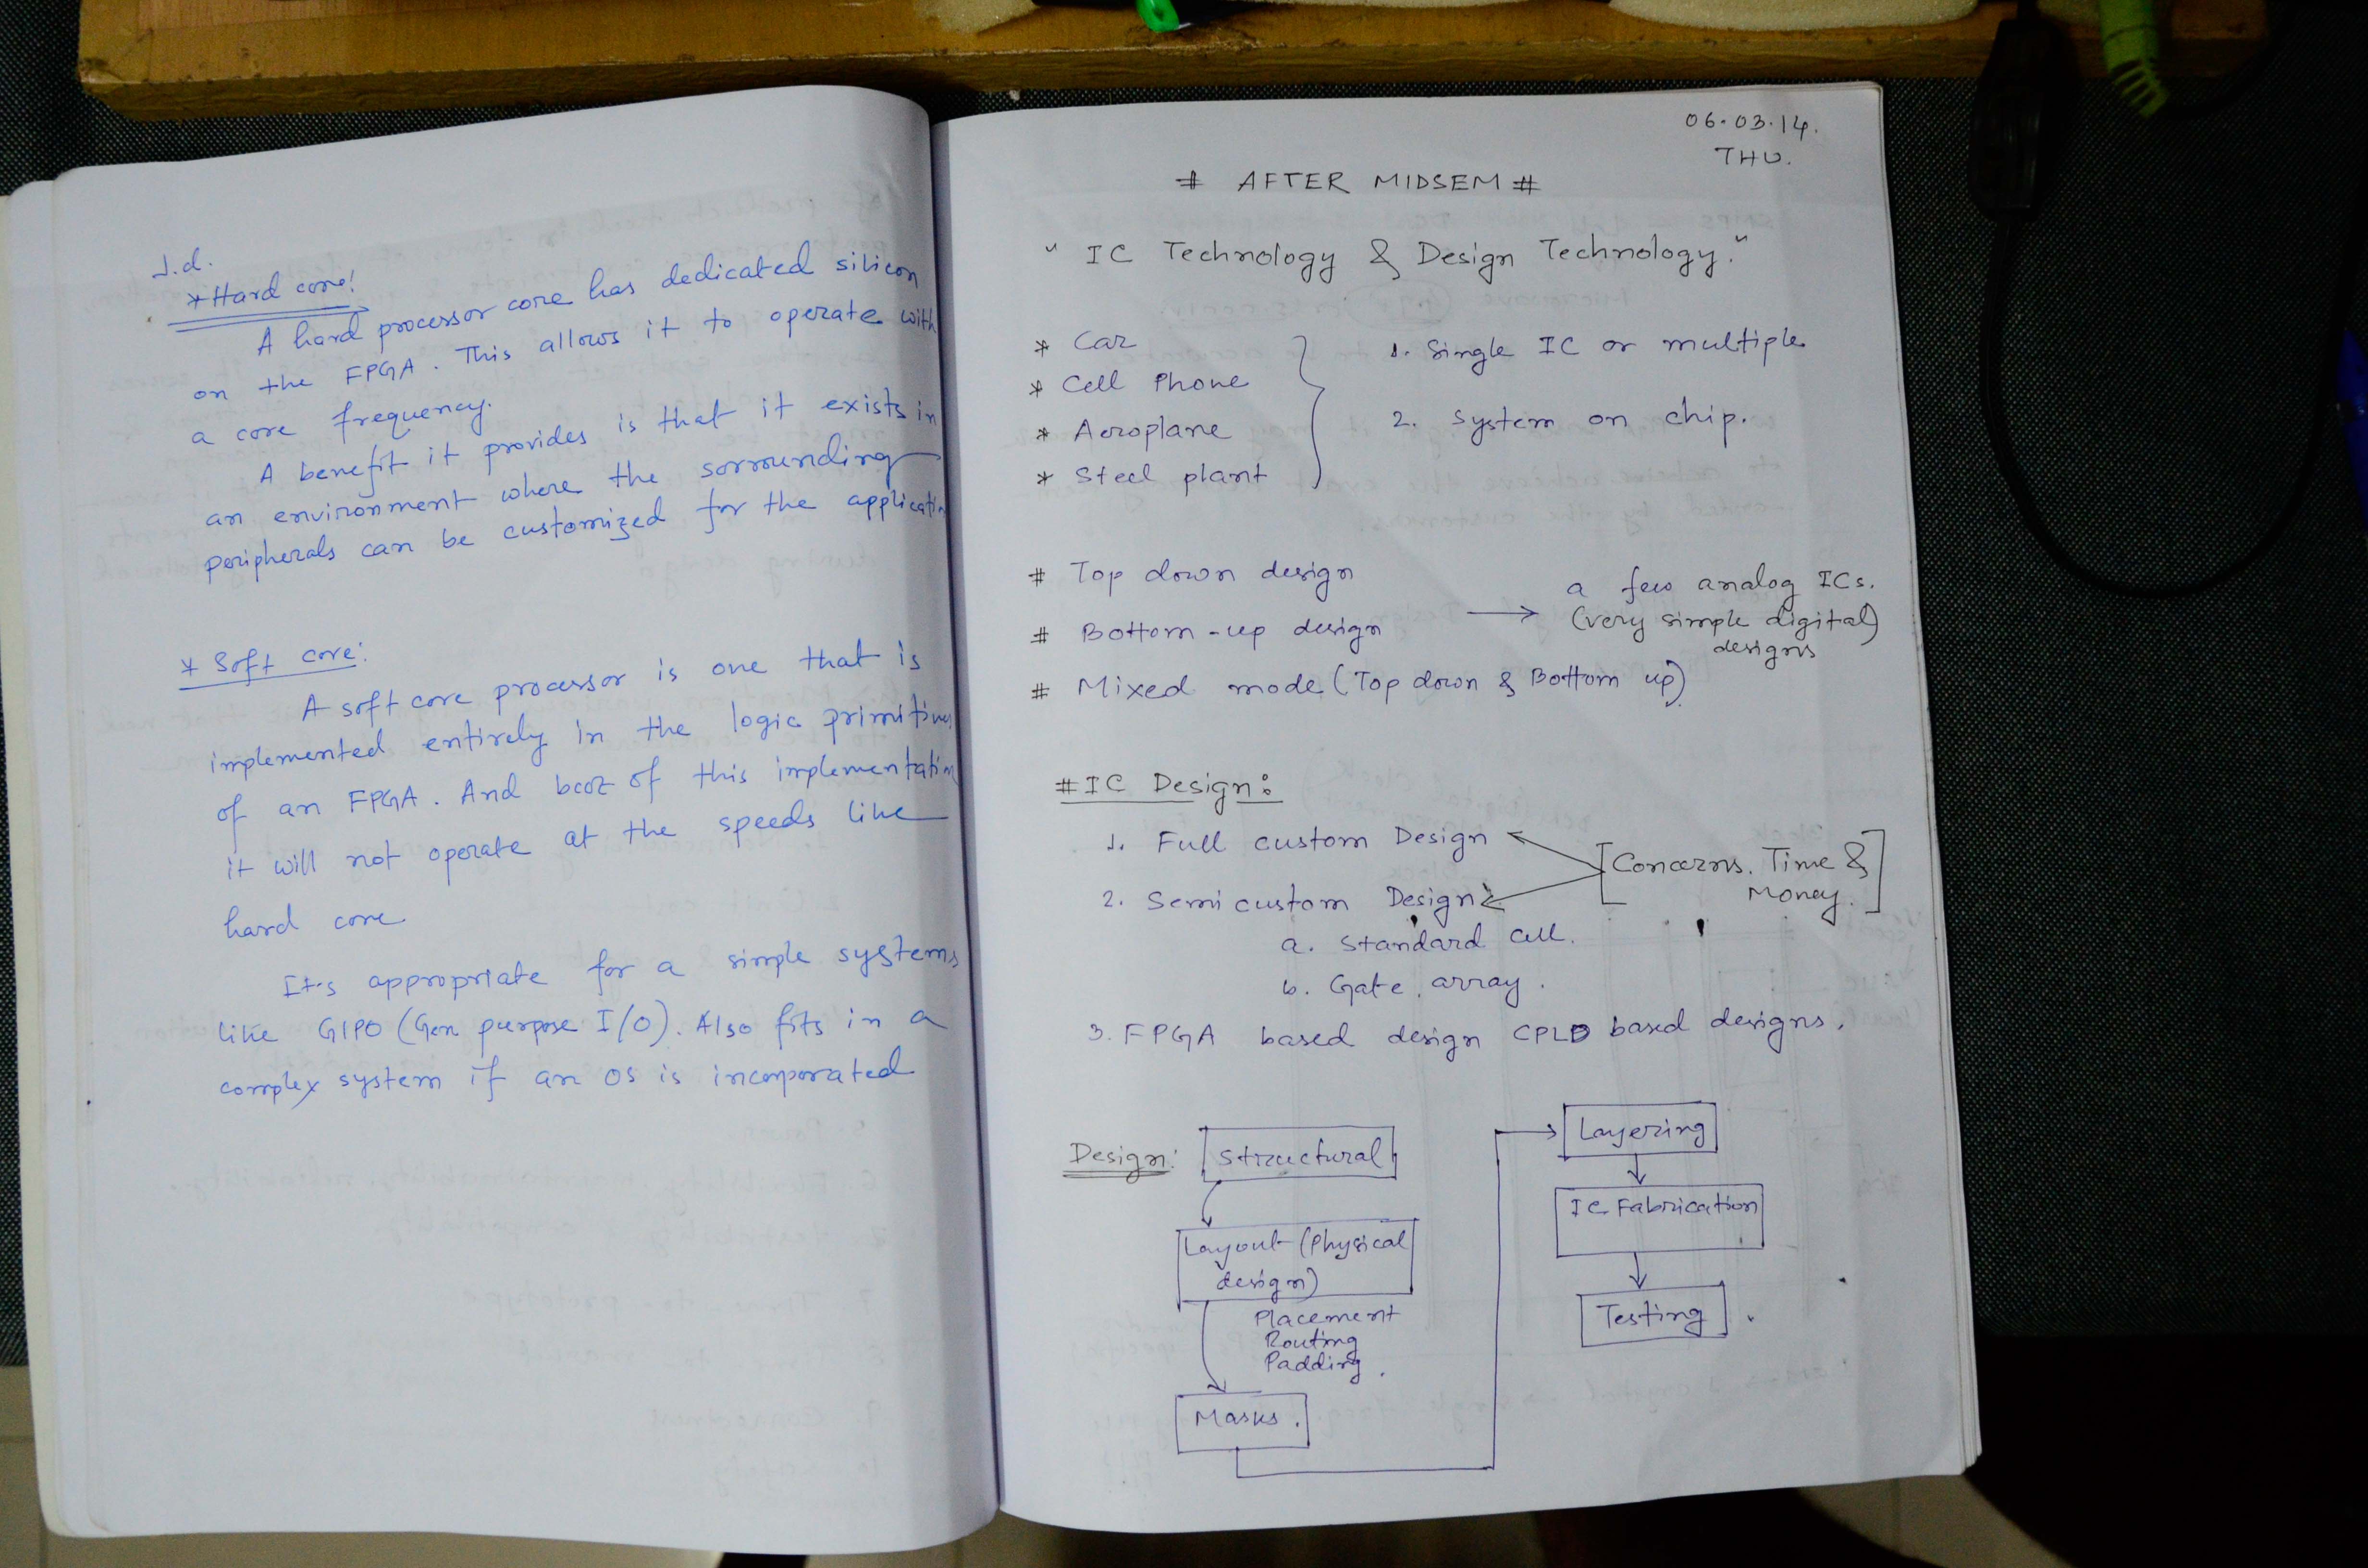 1.d.
* Hard core:
A hard processor core has dedicated silicon
on the FPGA. This allows it to operate with
a core frequency.
A benefit it provides is that it exists in
an environment where the sorrounding
peripherals can be customized for the applicatin
* Soft core:
A soft core processor is one that is
implemented entirely in the logic primitives
of an FPGA. And bcoz of this implementatin
it will not operate at the speeds like
hard core
It's appropriate for a simple systems
like GIPO (Gen purpose I/O). Also fits in a
complex system if an OS is incorporated
06.03.14.
THU.
# AFTER MIDSEM #
" IC Technology & Design Technology."
* Car
* Cell Phone
* Aeroplane
* Steel plant
1. Single IC or multiple
2. System on chip.
# Top down design
# Bottom-up design
→ a few analog ICs.
(very simple digital)
designs
# Mixed mode (Top down & Bottom up)
# IC Design:
1. Full custom Design
2. Semi custom Design
[Concerns. Time &
Money.]
a. Standard cell.
b. Gate array.
3. FPGA based design CPLD based designs.
Design:
Structural
Layout (Physical
design)
Placement
Routing
Padding.
Masks.
Layering
IC Fabrication
Testing.